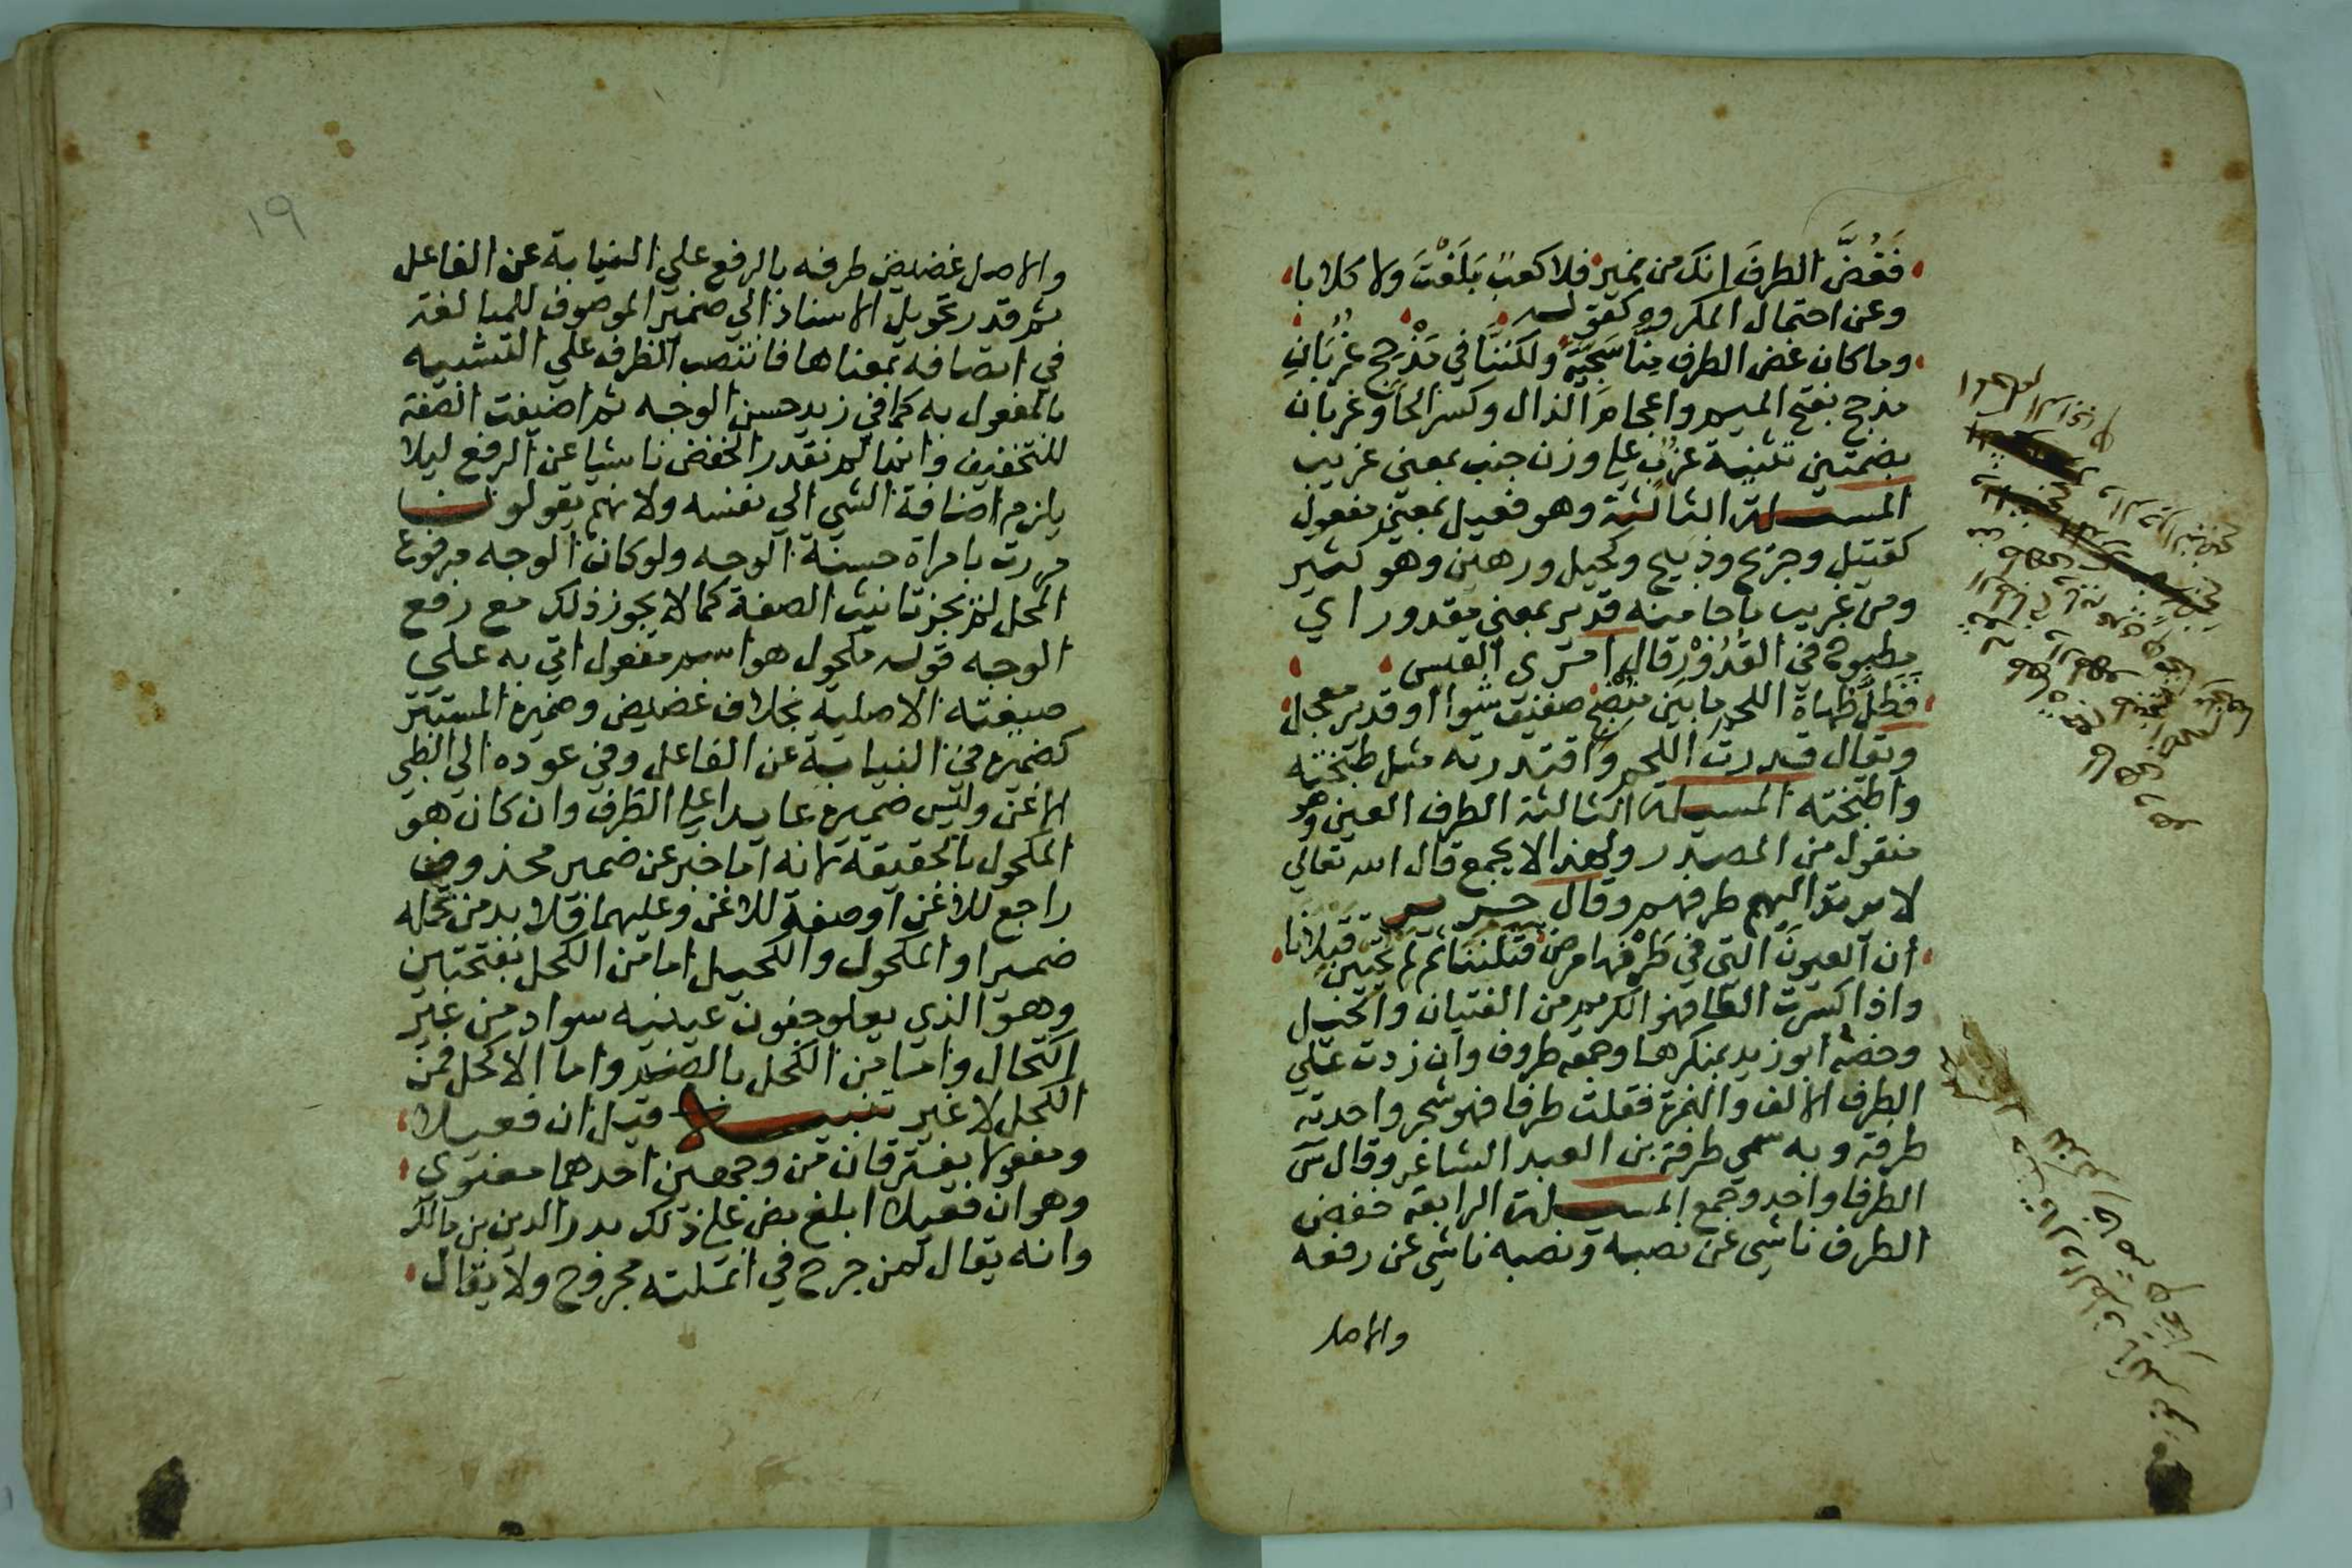 فَغُضَّ الطرفَ إنك من نمير فلا كعبً بَلَغْتَ ولا كلابا
وعن احتمال المكروه كقوله
وما كان غض الطرف منا سَجِيَّةً ولكننا في مَذْحِج غُرُبَانِ
مذحج بفتح الميم واعجام الذال وكسر الحا وغربان
بضمتين تثنية غرُب على وزن جنب بمعنى غريب
المسيلة الثالثة وهو فعيل بمعنى مفعول
كقتيل وجريح وذبيح وكحيل ورهين وهو كثير
ومن غريب ما جا منه قدير بمعنى مقدور اي
مطبوخ في القدور قال امرى القيس
فظل طهاة اللحم ما بين منضج صفيف شواا او قدير معجل
ويقال قدرت اللحم واقتدرته مثل طبخته
واطبخته المسيلة الثالثة الطرف العين وهو
منقول من المصدر ولهذا لا يجمع قال الله تعالي
لا يرتد اليهم طرفهم وقال جرير
ان العيونَ التي في طَرْفها مرض قتلننا ثم لم يحيين قتلانا
واذا كسرت الطا فهو الكريم من الفتيان والخيل
وخصه ابو زيد بمذكرها وجمعه طروف وان زدت على
الطرف الالف والهمزة فقلت طرفا فهو شجر واحدته
طرفة وبه سمي طرفة بن العبد الشاعر وقال س
الطرفا واحد وجمع المسيلة الرابعة خفض
الطرف ناشي عن نصبه ونصبه ناشي عن رفعه
والاصل
١٩
والاصل غضيض طرفه بالرفع علي النيابة عن الفاعل
ثم قدر تحويل الاسناد الي ضمير الموصوف للمبالغة
في اتصافه بمعناها فانتصب الطرف علي التشبيه
بالمفعول به كما في زيد حسن الوجه ثم اضيفت الصفة
للتخفيف وانما لم نقدر الخفض ناشيا عن الرفع ليلا
يلزم اضافة الشي الي نفسه ولانهم يقولون
مررت بامراة حسنة الوجه ولو كان الوجه مرفوع
المحل لم يجز تانيث الصفة كما لا يجوز ذلك مع رفع
الوجه قوله مكحول هو اسم مفعول اتي به علي
صيغته الاصلية بخلاف غضيض وضميره المستتر
كضميره في النيابة عن الفاعل وفي عوده الي الظبي
الاغن وليس ضميره عايدا علي الطرف وان كان هو
المكحول بالحقيقة لانه اما خبر عن ضمير محذوف
راجع للاغن او صفة للاغن وعليهما فلا بد من تحمله
ضميرا والمكحول والكحيل اما من الكحل بفتحتين
وهو الذي يعلو جفون عينيه سواد من غير
اكتحال واما من الكحل بالضم واما الاكحل فمن
الكحل لا غير تنبيه قيل ان فعيلا
ومفعولا يفترقان من وجهين احدهما معنوي
وهو ان فعيلا ابلغ نص علي ذلك بدر الدين بن مالك
وانه يقال لمن جرح في انملته مجروح ولا يقال